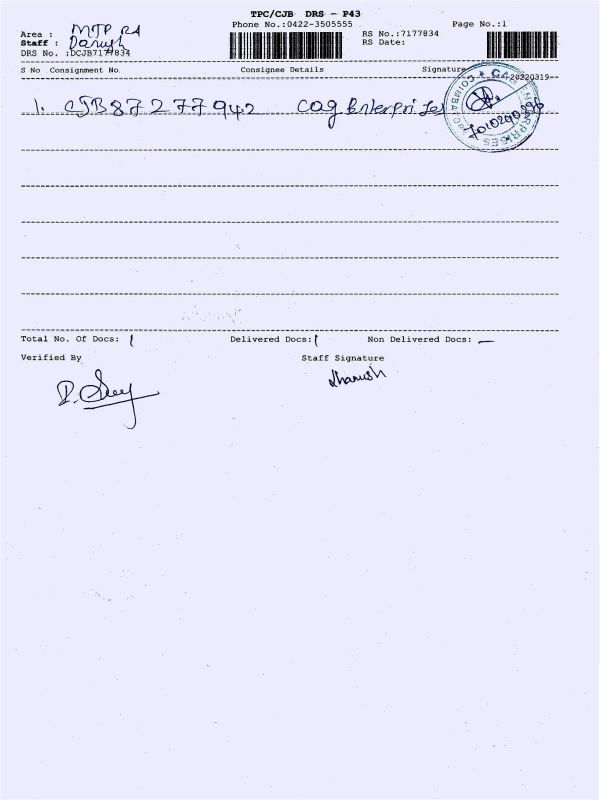 TPC/CJB DRS - P43
Phone No.:0422-3505555
Page No.:1
Area : MTP Rd
RS No.:7177834
Staff :
RS Date:
DRS No. :DCJB7177834
S No Consignment No Consignee Details Signature
20220319
1. CJB87277942 COG Enterprises
Total No. Of Docs: 1 Delivered Docs: 1 Non Delivered Docs: —
Verified By Staff Signature
Dhanush